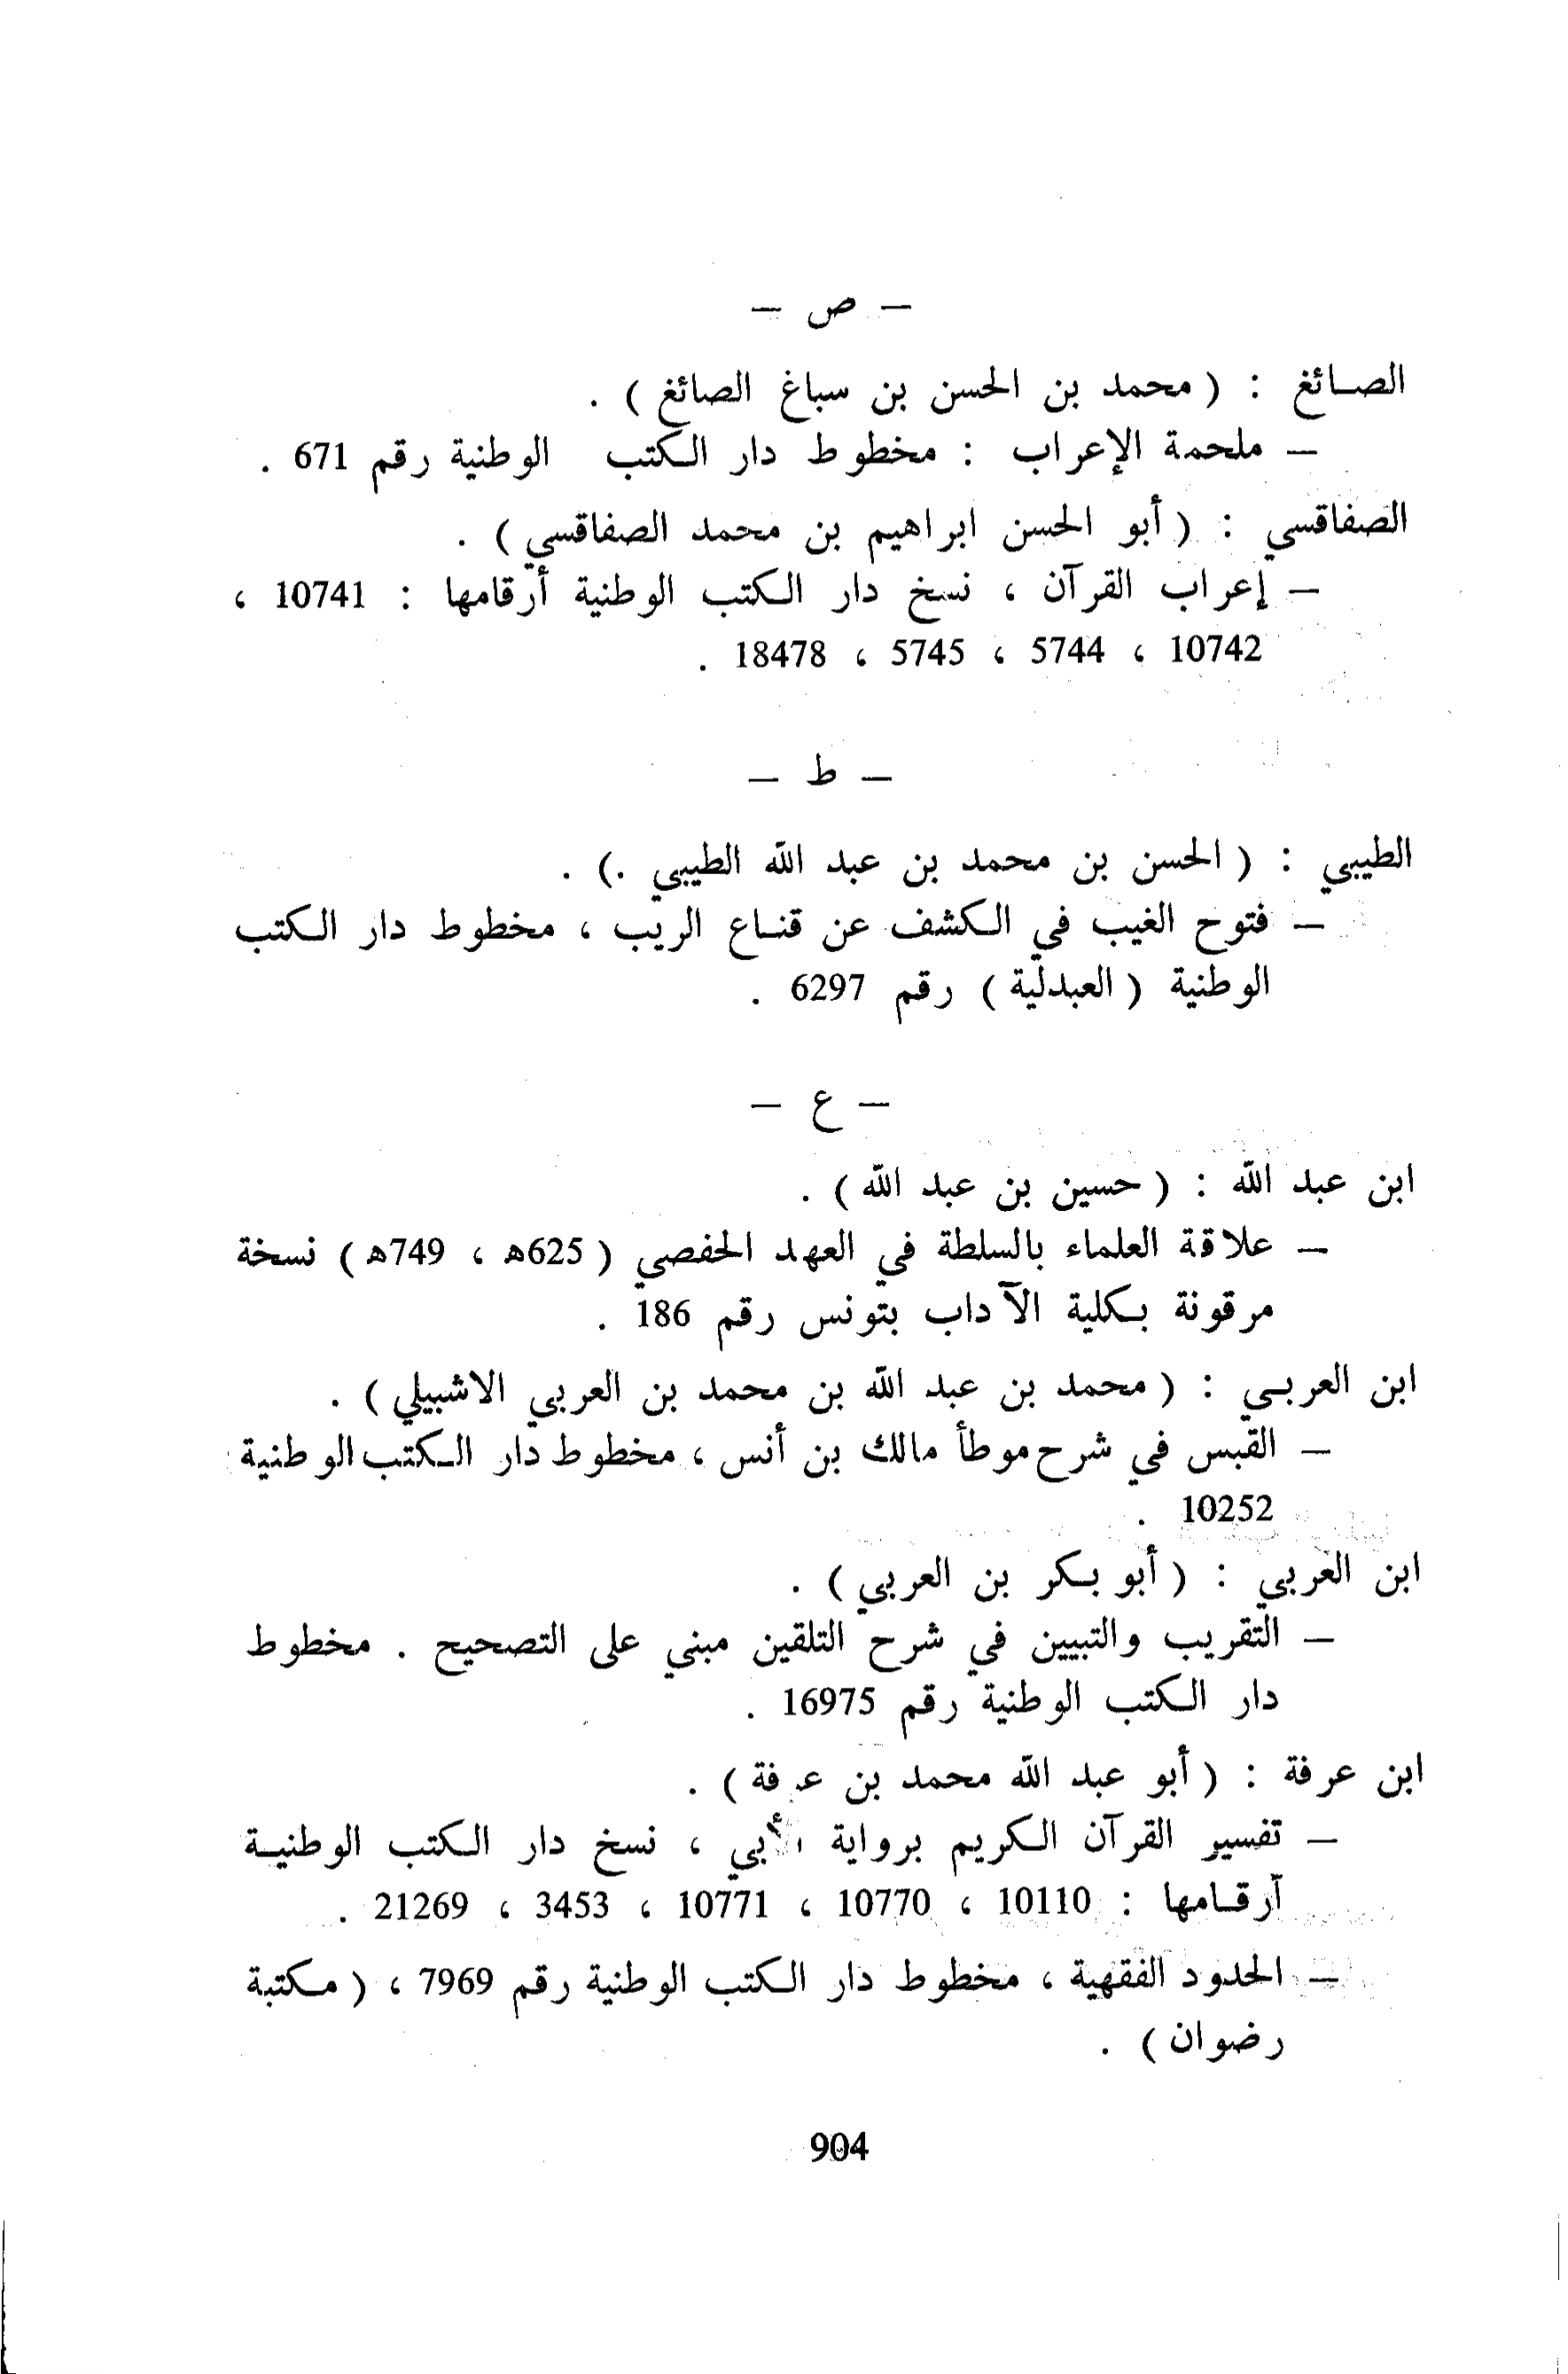 – ص –
الصائغ : ( محمد بن الحسن بن سباغ الصائغ ) .
– ملحمة الإعراب : مخطوط دار الكتب الوطنية رقم 671 .
الصفاقسي : ( أبو الحسن ابراهيم بن محمد الصفاقسي ) .
– إعراب القرآن ، نسخ دار الكتب الوطنية أرقامها : 10741 ،
10742 ، 5744 ، 5745 ، 18478 .
– ط –
الطيبي : ( الحسن بن محمد بن عبد الله الطيبي .) .
– فتوح الغيب في الكشف عن قناع الريب ، مخطوط دار الكتب
الوطنية ( العبدلية ) رقم 6297 .
– ع –
ابن عبد الله : ( حسين بن عبد الله ) .
– علاقة العلماء بالسلطة في العهد الحفصي ( 625ه ، 749ه ) نسخة
مرقونة بكلية الآداب بتونس رقم 186 .
ابن العربي : ( محمد بن عبد الله بن محمد بن العربي الاشبيلي ) .
– القبس في شرح موطأ مالك بن أنس ، مخطوط دار الكتب الوطنية
10252 .
ابن العربي : ( أبو بكر بن العربي ) .
– التقريب والتبيين في شرح التلقين مبني على التصحيح . مخطوط
دار الكتب الوطنية رقم 16975 .
ابن عرفة : ( أبو عبد الله محمد بن عرفة ) .
– تفسير القرآن الكريم برواية الأبي ، نسخ دار الكتب الوطنية
آرقامها : 10110 ، 10770 ، 10771 ، 3453 ، 21269 .
– الحدود الفقهية ، مخطوط دار الكتب الوطنية رقم 7969 ، ( مكتبة
رضوان ) .
904